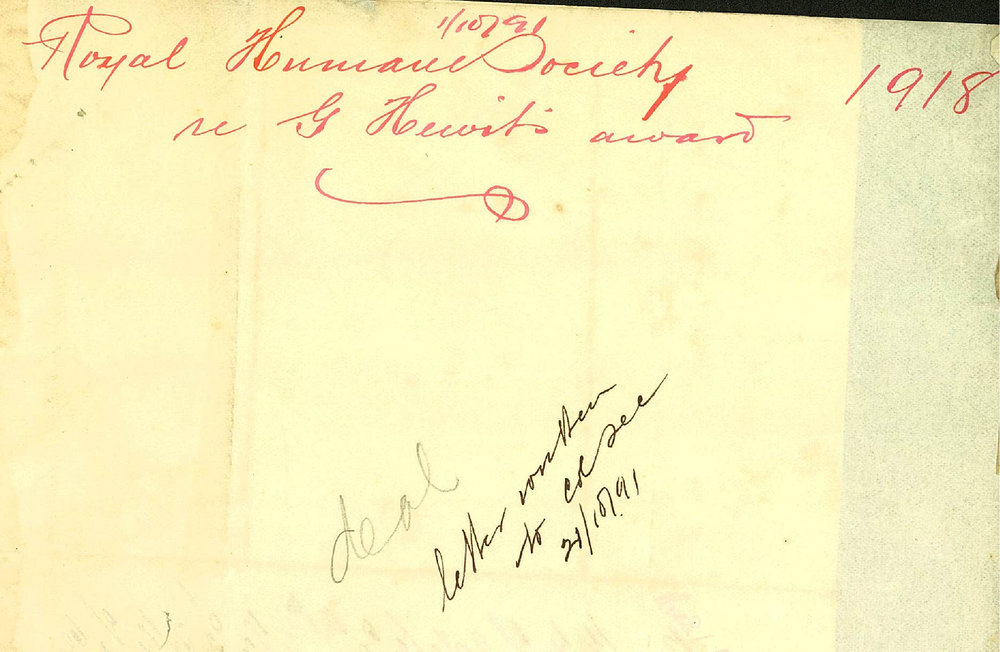 1/10/91
Royal Humane Society 1918
re G Hewit's award
deal
letter written
to col sec
21/10/91